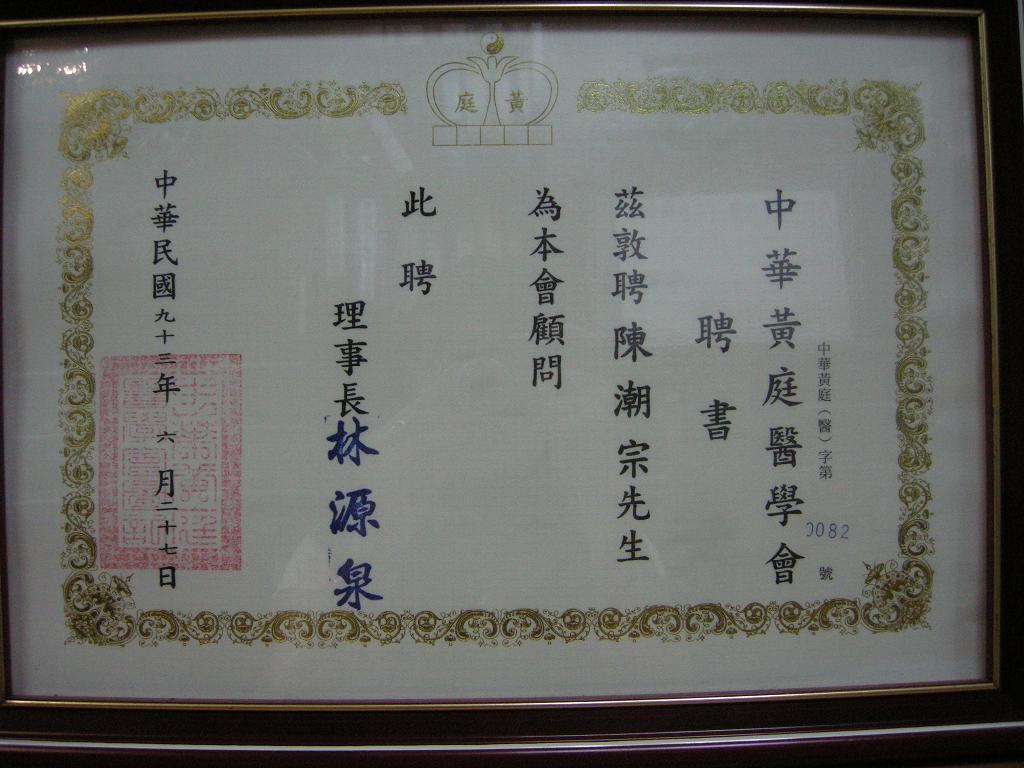 黃庭
中華黃庭（醫）字第0082號
中華黃庭醫學會
聘書
茲敦聘陳潮宗先生
為本會顧問
此聘
理事長林源泉
中華民國九十三年六月二十七日